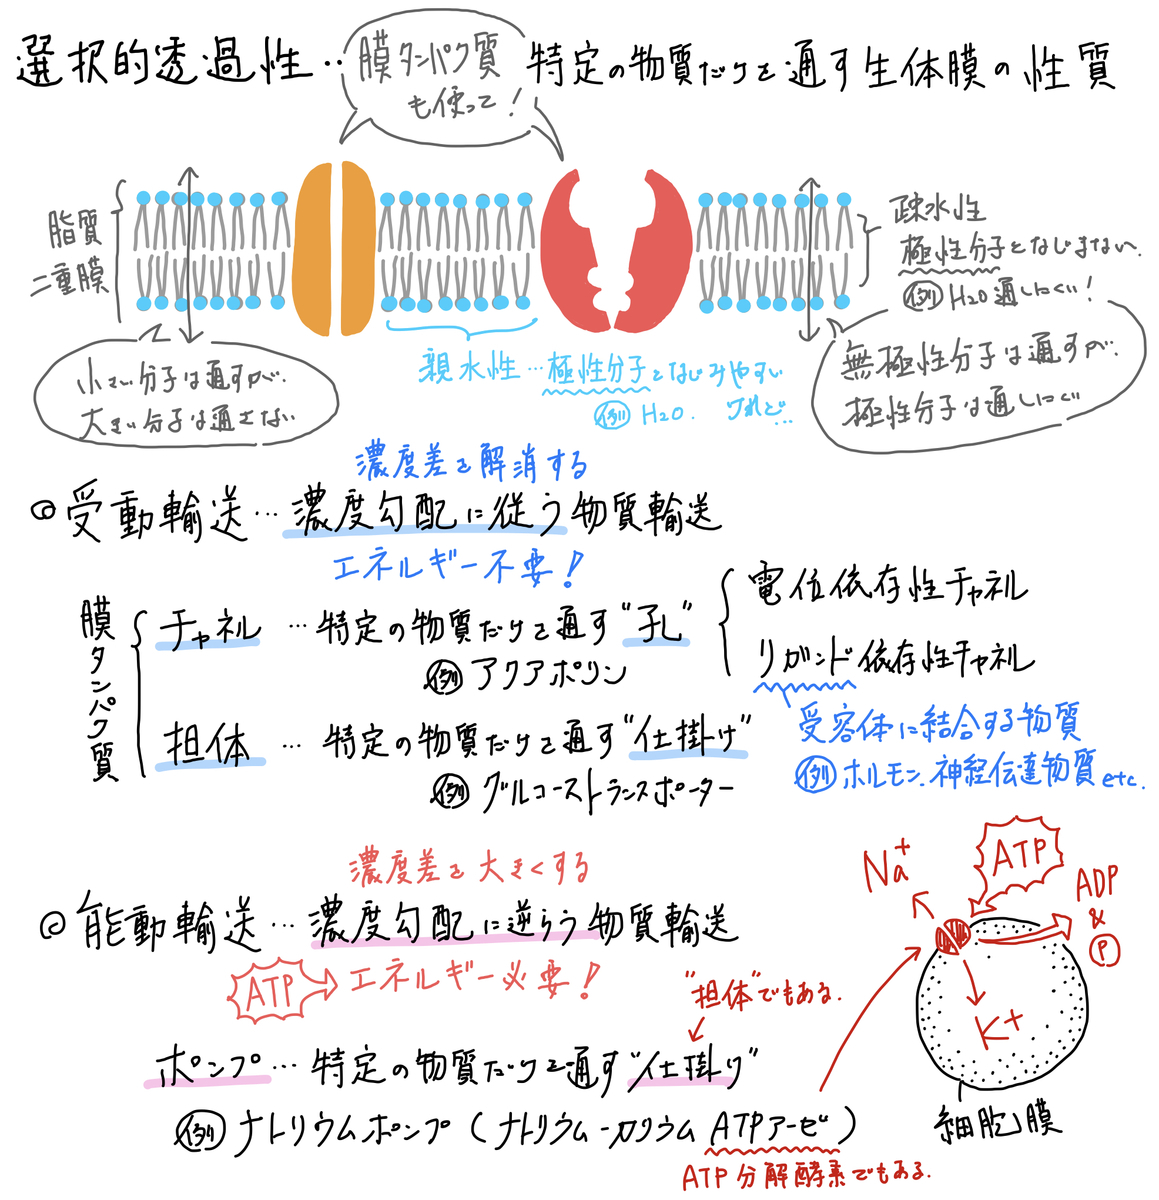 選択的透過性‥特定の物質だけを通す生体膜の性質
膜タンパク質
も使って！
脂質
二重膜
疎水性
極性分子となじまない.
例 H2O通しにくい！
小さい分子は通すが.
大きい分子は通さない
親水性…極性分子となじみやすい
例 H2O. けれど…
無極性分子は通すが.
極性分子は通しにくい
濃度差を解消する
◎受動輸送…濃度勾配に従う物質輸送
エネルギー不要！
膜タンパク質
チャネル …特定の物質だけを通す“孔”
例 アクアポリン
電位依存性チャネル
リガンド依存性チャネル
受容体に結合する物質
例 ホルモン.神経伝達物質etc.
担体 …特定の物質だけを通す“仕掛け”
例 グルコーストランスポーター
濃度差を大きくする
◎能動輸送…濃度勾配に逆らう物質輸送
ATP エネルギー必要！
“担体”でもある.
ポンプ…特定の物質だけを通す“仕掛け”
例 ナトリウムポンプ(ナトリウム-カリウムATPアーゼ)
ATP分解酵素でもある.
Na+
ATP
ADP
&
P
K+
細胞膜